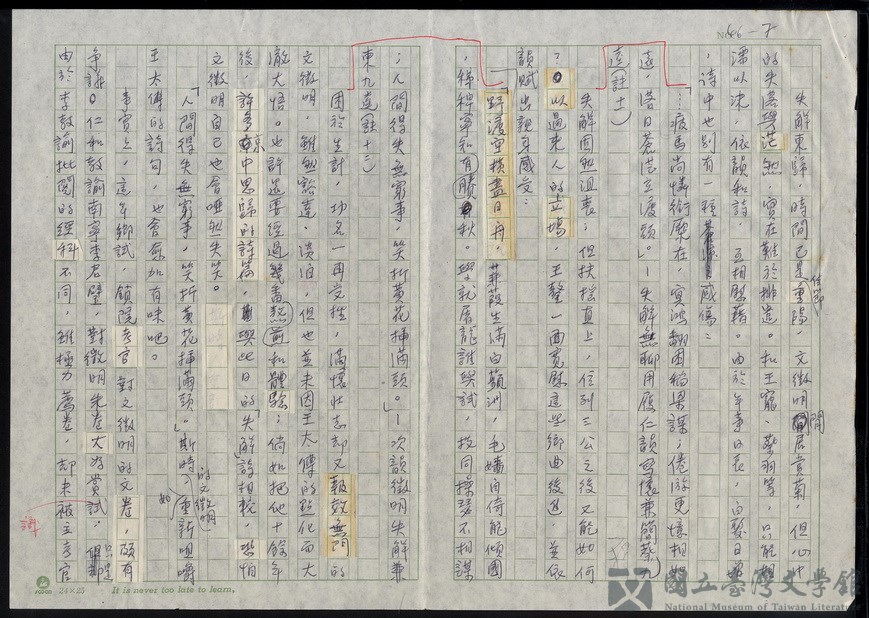 No. 46-7
失解東歸，時間已是重陽佳節，文徵明閒居賞菊，但心中
的失落與茫然，實在難於排遣。和王寵、蔡羽等，只能相
濡以沫，依韻和詩，互相慰藉。由於年事日長，白髮日萌
，詩中也別有一種感傷：
「…疲馬尚憐銜厩在，冥鴻翻困稻粱謀；倦游更憶相如
遠，落日蒼茫立渡頭。」－失解無聊用履仁韻寫懷兼簡蔡九
逵（註十一）
失解固然沮喪；但扶搖直上，位列三公之後又能如何
？以過來人的立場，王鏊一面寬慰這些鄉曲後進，並依
韻賦出親身感受：
「野渡空橫盡日舟，菶葭生滿白蘋洲，毛嬙自倚能傾國
，稊稗寧知有勝秋。學就屠龍誰與試，技同操瑟不相謀
；人間得失無窮事，笑折黃花插滿頭。」－次韻徵明失解兼
柬九逵（註十二）
困於生計，功名一再受挫，滿懷壯志却又報效無門的
文徵明，雖然豁達、淡泊，但也並未因王太傅的點化而大
澈大悟。也許還要經過幾番熬煎和體驗；倘如把他十餘年
後，許多京中思歸的詩篇，與此日的「失解」詩相較，恐怕
文徵明自己也會啞然失笑。
「人間得失無窮事，笑折黃花插滿頭。」斯時的文徵明，如重新咀嚼
王太傅的詩句，也會愈加有味吧。
事實上，這年鄉試，鎖院考官對文徵明的文卷，頗有
爭議。仁和教諭南寧李君璧，對徵明朱卷大為賞試，只是
由於李教諭批閱的經科不同，雖極力薦卷，却未被主考官
識
24×25
It is never too late to learn.
國立臺灣文學館
National Museum of Taiwan Literature